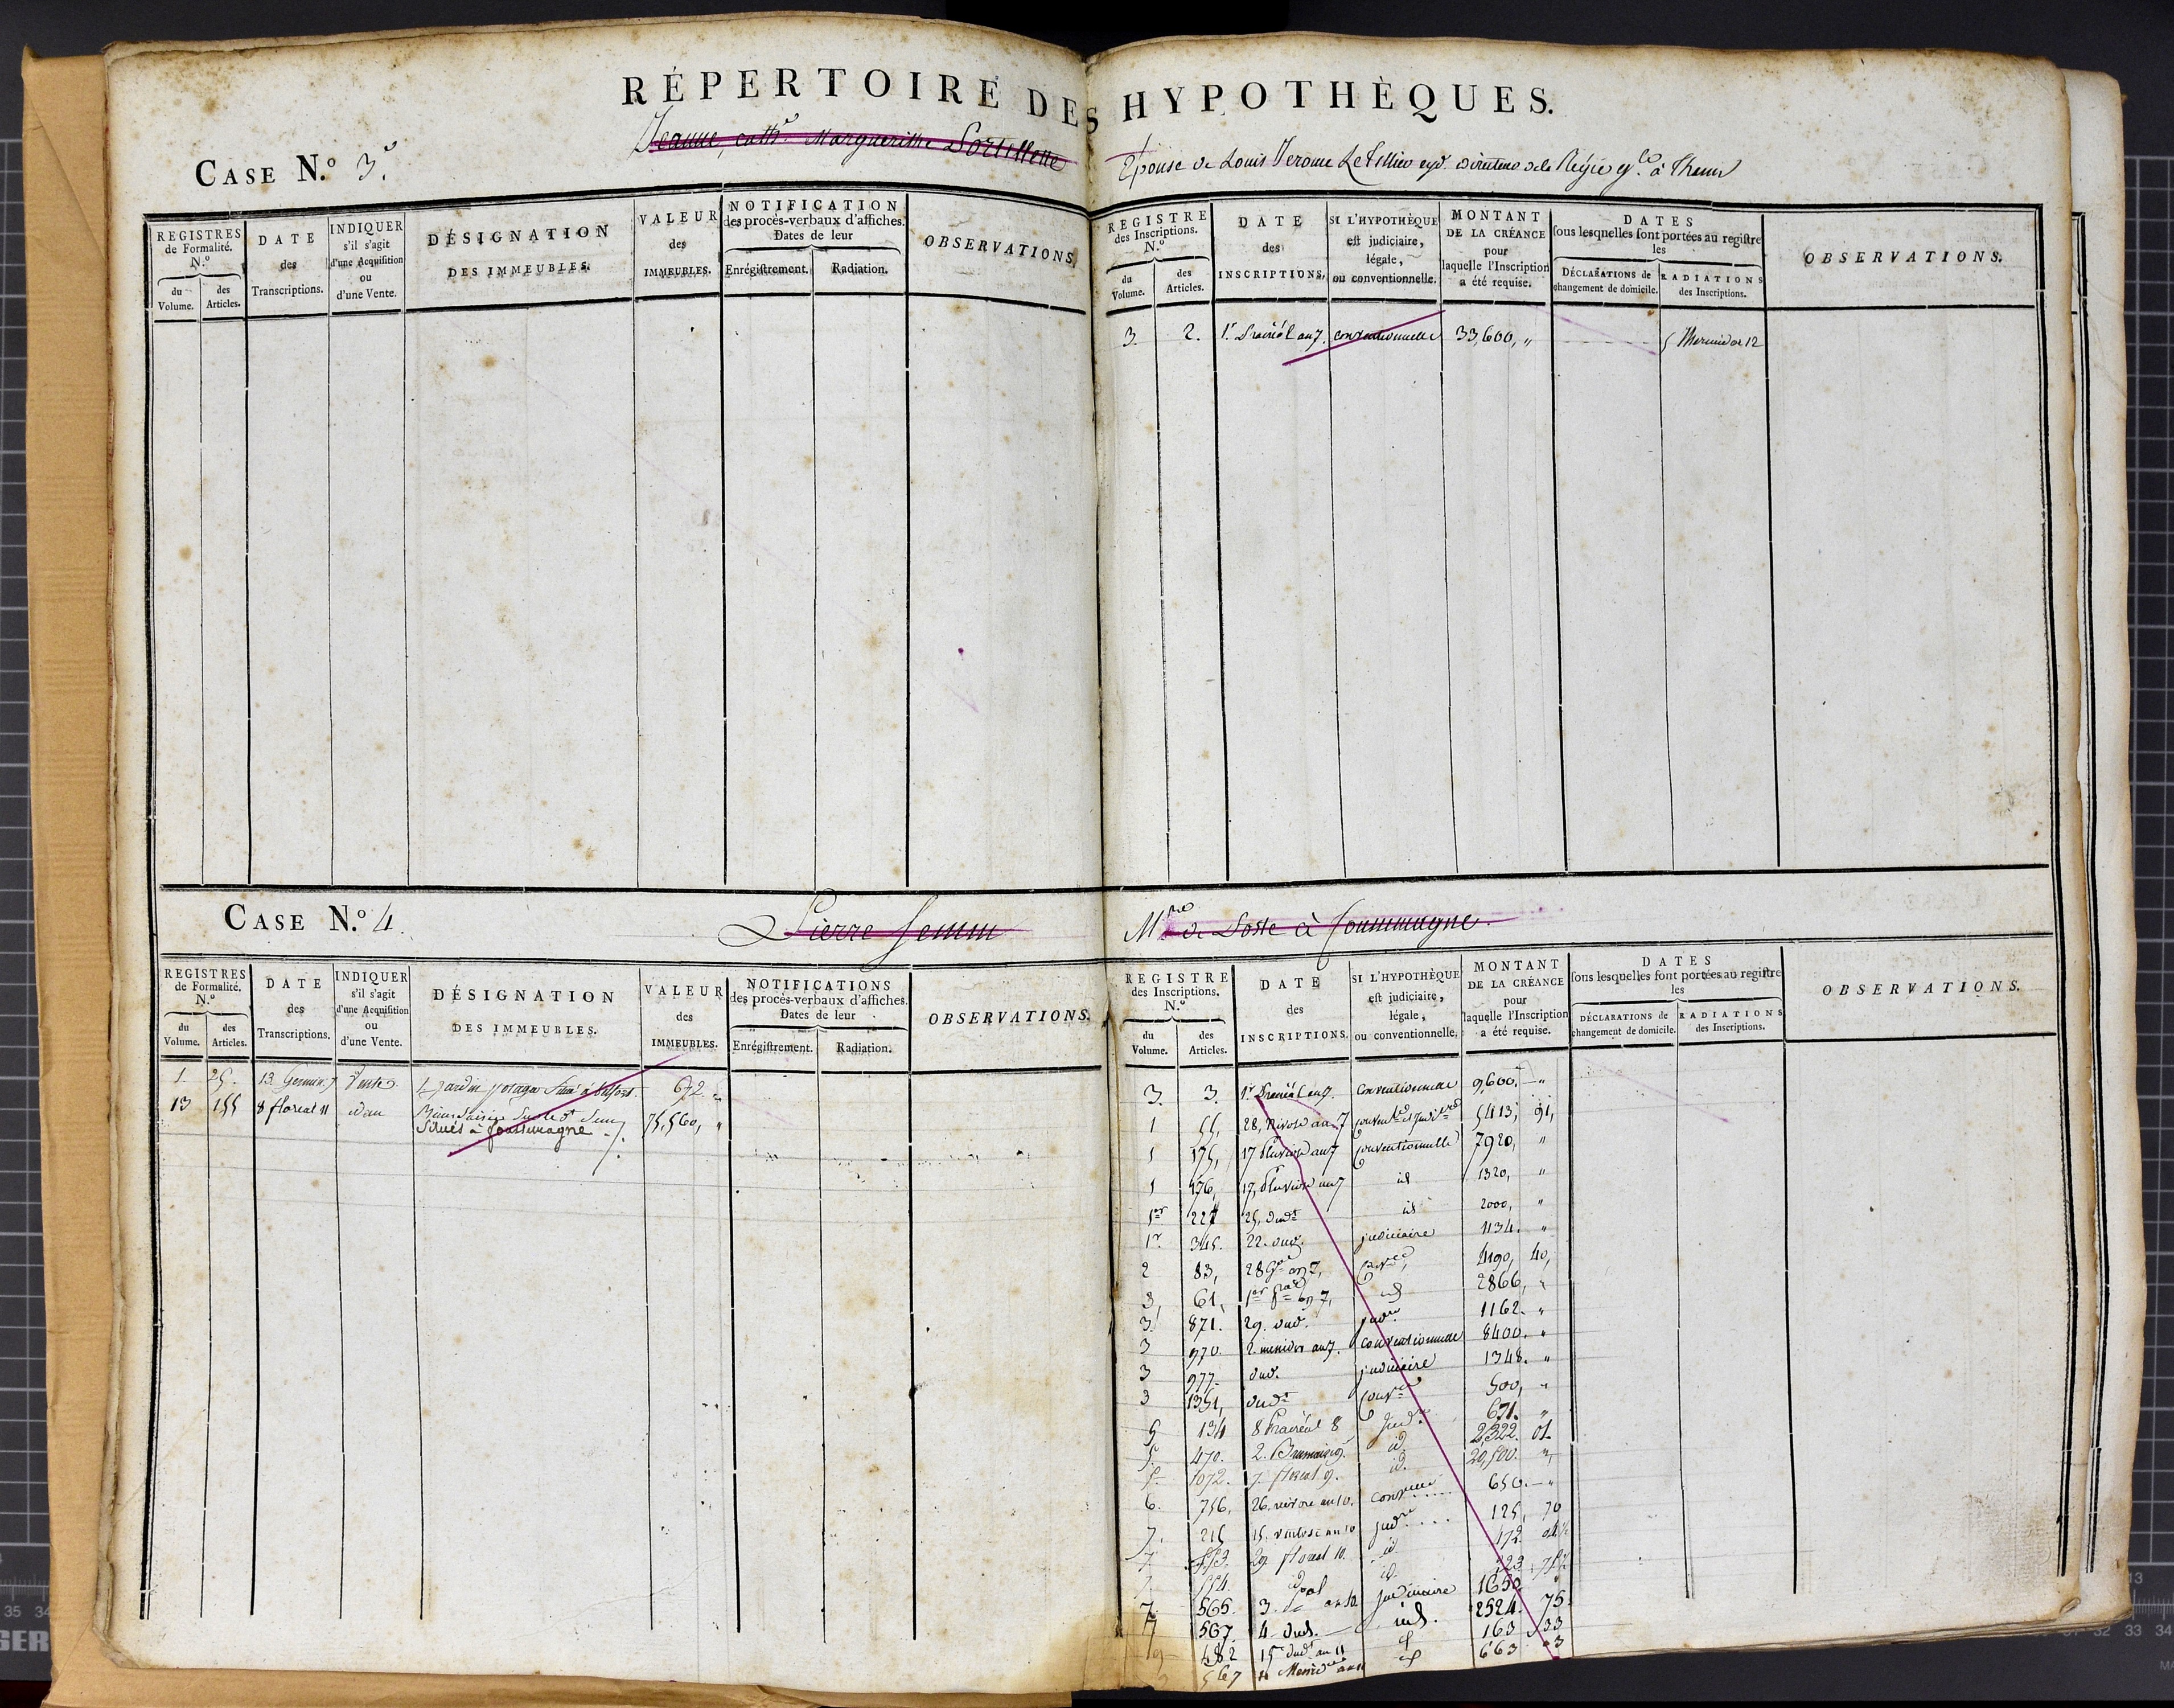 RÉPERTOIRE DES HYPOTHÈQUES.
CASE N.º 3.e
Jeanne, cath.e Margueritte
Epouse de Louis Jerome Le Tellier à
REGISTRES de Formalité. N.º
du Volume.
des Articles.
DATE des Transcriptions.
INDIQUER s'il s'agit d'une Acquisition ou d'une Vente.
DÉSIGNATION DES IMMEUBLES.
VALEUR des IMMEUBLES.
NOTIFICATION des procès-verbaux d'affiches. Dates de leur
Enrégistrement.
Radiation.
OBSERVATIONS.
REGISTRE des Inscriptions. N.º
du Volume.
des Articles.
DATE des INSCRIPTIONS.
SI L'HYPOTHÈQUE est judiciaire, légale, ou conventionnelle.
MONTANT DE LA CRÉANCE pour laquelle l'Inscription a été requise.
DATES sous lesquelles sont portées au registre les
DÉCLARATIONS de changement de domicile.
RADIATIONS des Inscriptions.
OBSERVATIONS.
3. 2. 1.r Prairéal an 7. conventionnelle 33,600, " Thermidor 12
CASE N.º 4.
Pierre
M de Poste à
REGISTRES de Formalité. N.º
du Volume.
des Articles.
DATE des Transcriptions.
INDIQUER s'il s'agit d'une Acquisition ou d'une Vente.
DÉSIGNATION DES IMMEUBLES.
VALEUR des IMMEUBLES.
NOTIFICATIONS des procès-verbaux d'affiches. Dates de leur
Enrégistrement.
Radiation.
OBSERVATIONS.
REGISTRE des Inscriptions. N.º
du Volume.
des Articles.
DATE des INSCRIPTIONS.
SI L'HYPOTHÈQUE est judiciaire, légale, ou conventionnelle.
MONTANT DE LA CRÉANCE pour laquelle l'Inscription a été requise.
DATES sous lesquelles sont portées au registre les
DÉCLARATIONS de changement de domicile.
RADIATIONS des Inscriptions.
OBSERVATIONS.
1. 25. 13 Germin. 7 Vente 1 jardin potager Situé à Belfort. 672. "
13 155 8 floreal 11 75,560, "
Situés à foussemagne
3. 3. 1.r Prairéal an 7. Conventionnelle 9,600. "
1 55, 28, Nivose an 7 5413, 91,
1 175, 17 Pluviose an 7 conventionnelle 7920, "
1 176, 17, Pluviose an 7 id 1320, "
1er 227 25, dudt id 2000, "
1.r 345. 22. dud. judiciaire 1134. "
2 83, 28 an 7, 4190, 40,
3, 61, 1er 7, id 2866, "
3. 871. 29. dud. jud.re 1162. "
3 970. 2. messidor an 7. conventionnelle 8400. "
3 977. dud. judiciaire 1348. "
3 1351, dudt 500, "
5 134 8 Prairéal 8 Jud.re 671. "
5. 470. 2. Brumaire 9. id. 2,322. 01.
1072. 7. floreal 9. id. 20,500. "
6. 756, 26. nivose an 10. 650. "
7. 215 15. ventose an 10 jud.re 125, 70
7. 29 floreal 10. id. 172
554. id. id.
7. 565. 3. an 10 judiciaire 1650
7 567. 4 dud. id. 2524. 75.
482 15 dudt an 11 163 33
567 Messid an 663